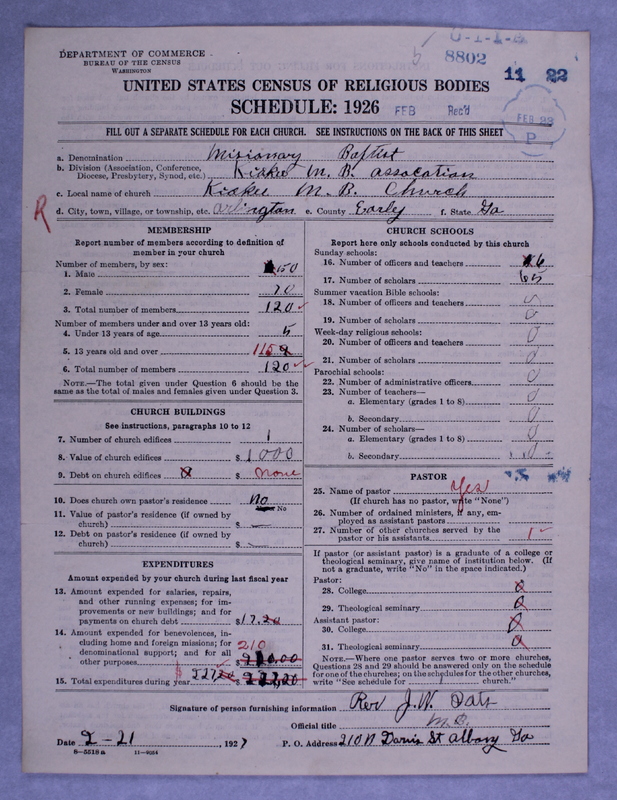 8802
11 22
DEPARTMENT OF COMMERCE
BUREAU OF THE CENSUS
WASHINGTON
UNITED STATES CENSUS OF RELIGIOUS BODIES
SCHEDULE: 1926
FEB Rec'd
FEB 23
P
FILL OUT A SEPARATE SCHEDULE FOR EACH CHURCH. SEE INSTRUCTIONS ON THE BACK OF THIS SHEET
a. Denomination Misionary Baptist
b. Division (Association, Conference, Diocese, Presbytery, Synod, etc.) Kiokee M. B. assocation
c. Local name of church Kiokee M. B. Church
R
d. City, town, village, or township, etc. arlington e. County Early f. State Ga
MEMBERSHIP
Report number of members according to definition of
member in your church
Number of members, by sex:
1. Male 50
2. Female 70
3. Total number of members 120
Number of members under and over 13 years old:
4. Under 13 years of age 5
5. 13 years old and over 115
6. Total number of members 120
NOTE.—The total given under Question 6 should be the
same as the total of males and females given under Question 3.
CHURCH BUILDINGS
See instructions, paragraphs 10 to 12
7. Number of church edifices 1
8. Value of church edifices $1000
9. Debt on church edifices $ none
10. Does church own pastor's residence No
No
11. Value of pastor's residence (if owned by
church) $
12. Debt on pastor's residence (if owned by
church) $
EXPENDITURES
Amount expended by your church during last fiscal year
13. Amount expended for salaries, repairs,
and other running expenses; for im-
provements or new buildings; and for
payments on church debt $17.20
14. Amount expended for benevolences, in-
cluding home and foreign missions; for
denominational support; and for all
other purposes $ 210
15. Total expenditures during year $ 227.20
CHURCH SCHOOLS
Report here only schools conducted by this church
Sunday schools:
16. Number of officers and teachers 6
17. Number of scholars 65
Summer vacation Bible schools:
18. Number of officers and teachers 0
19. Number of scholars 0
Week-day religious schools:
20. Number of officers and teachers 0
21. Number of scholars 0
Parochial schools:
22. Number of administrative officers 0
23. Number of teachers—
a. Elementary (grades 1 to 8) 0
b. Secondary 0
24. Number of scholars—
a. Elementary (grades 1 to 8) 0
b. Secondary 0
PASTOR
25. Name of pastor Yes
(If church has no pastor, write "None")
26. Number of ordained ministers, if any, em-
ployed as assistant pastors
27. Number of other churches served by the
pastor or his assistants 1
If pastor (or assistant pastor) is a graduate of a college or
theological seminary, give name of institution below. (If
not a graduate, write "No" in the space indicated.)
Pastor:
28. College
29. Theological seminary
Assistant pastor:
30. College
31. Theological seminary
NOTE.—Where one pastor serves two or more churches,
Questions 28 and 29 should be answered only on the schedule
for one of the churches; on the schedules for the other churches,
write "See schedule for church."
Signature of person furnishing information Rev J. W.
Official title
Date 2-21 1927 P. O. Address 210 N Davis St Albany Ga
8-5518a 11-9034